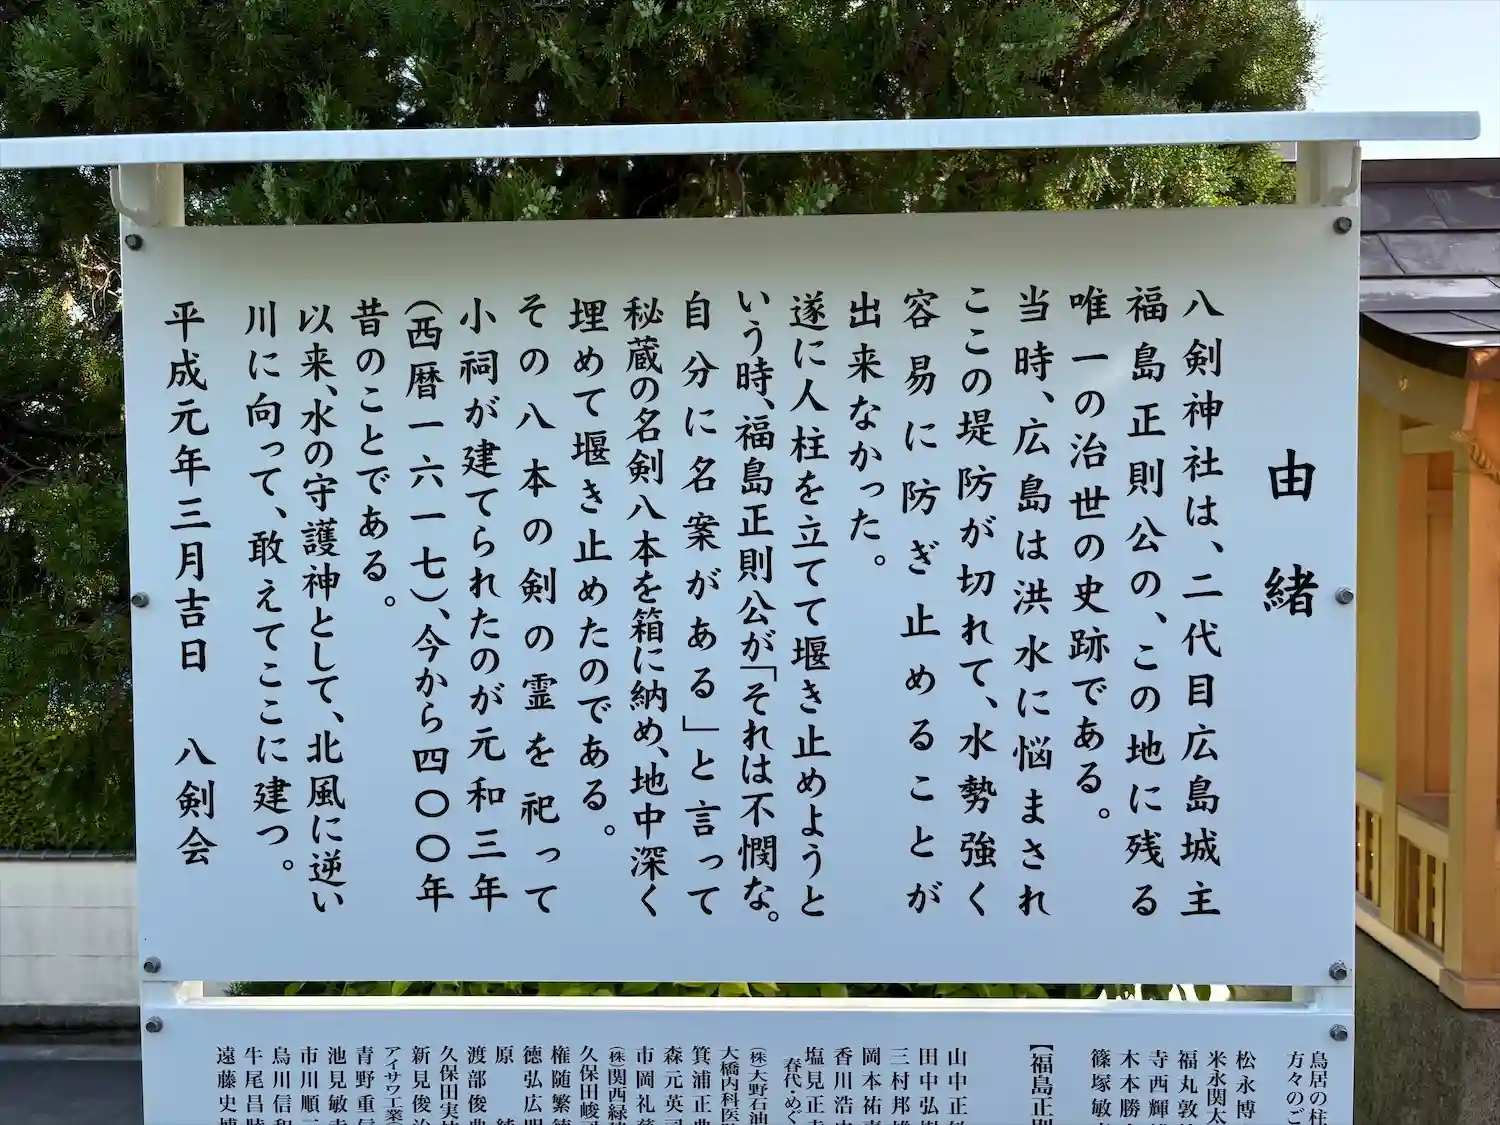 由緒
八剣神社は、二代目広島城主
福島正則公の、この地に残る
唯一の治世の史跡である。
当時、広島は洪水に悩まされ
ここの堤防が切れて、水勢強く
容易に防ぎ止めることが
出来なかった。
遂に人柱を立てて堰き止めようと
いう時、福島正則公が「それは不憫な。
自分に名案がある」と言って
秘蔵の名剣八本を箱に納め、地中深く
埋めて堰き止めたのである。
その八本の剣の霊を祀って
小祠が建てられたのが元和三年
(西暦一六一七)、今から四〇〇年
昔のことである。
以来、水の守護神として、北風に逆い
川に向って、敢えてここに建つ。
平成元年三月吉日 八剣会
鳥居の柱
方々のご
松永博
米永関太
福丸敦
寺西輝
木本勝
篠塚敏
【福島正則
山中正
田中弘
三村邦雄
岡本祐
香川浩
塩見正
春代・めぐ
㈱大野石油
大橋内科医
箕浦正典
森元英
市岡礼
㈱関西緑
久保田峻
権随繁
徳弘広明
原
渡部俊
久保田実
新見俊治
アイサワ工業
青野重信
池見敏
市川順
烏川信和
牛尾昌
遠藤史